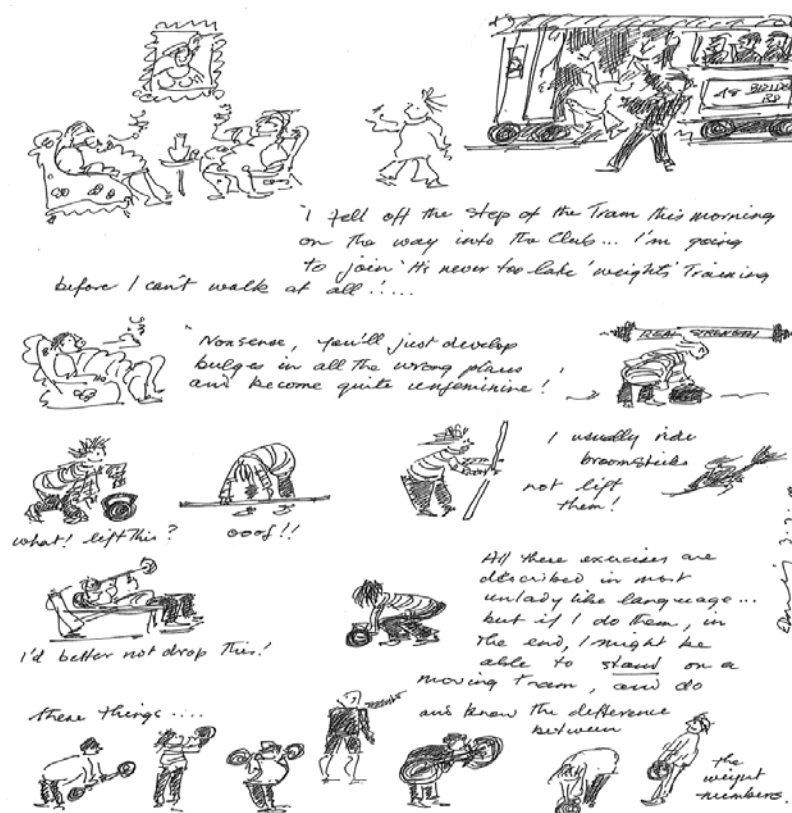 18 BUILDERS RD
"I fell off the step of the Tram this morning
on the way into the Club... I'm going
to join 'It's never too late' weights Training
before I can't walk at all!....
"Nonsense, you'll just develop
bulges in all the wrong places
and become quite unfeminine!"
REAL STRENGTH
I usually ride
broomsticks
not lift
them!
what! lift this?
ooof!!
All these exercises are
described in most
unlady like language...
but if I do them, in
the end, I might be
able to stand on a
moving Tram, and do
I'd better not drop this!
these things....
and know the difference
between
the
weight
numbers.